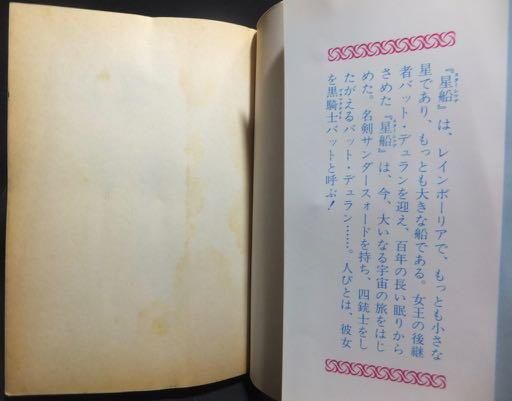 『星船』は、レインボーリアで、もっとも小さな
星であり、もっとも大きな船である。女王の後継
者バット・デュランを迎え、百年の長い眠りから
さめた『星船』は、今、大いなる宇宙の旅をはじ
めた。名剣サンダースォードを持ち、四銃士をし
たがえるバット・デュラン……。人びとは、彼女
を黒騎士バットと呼ぶ！